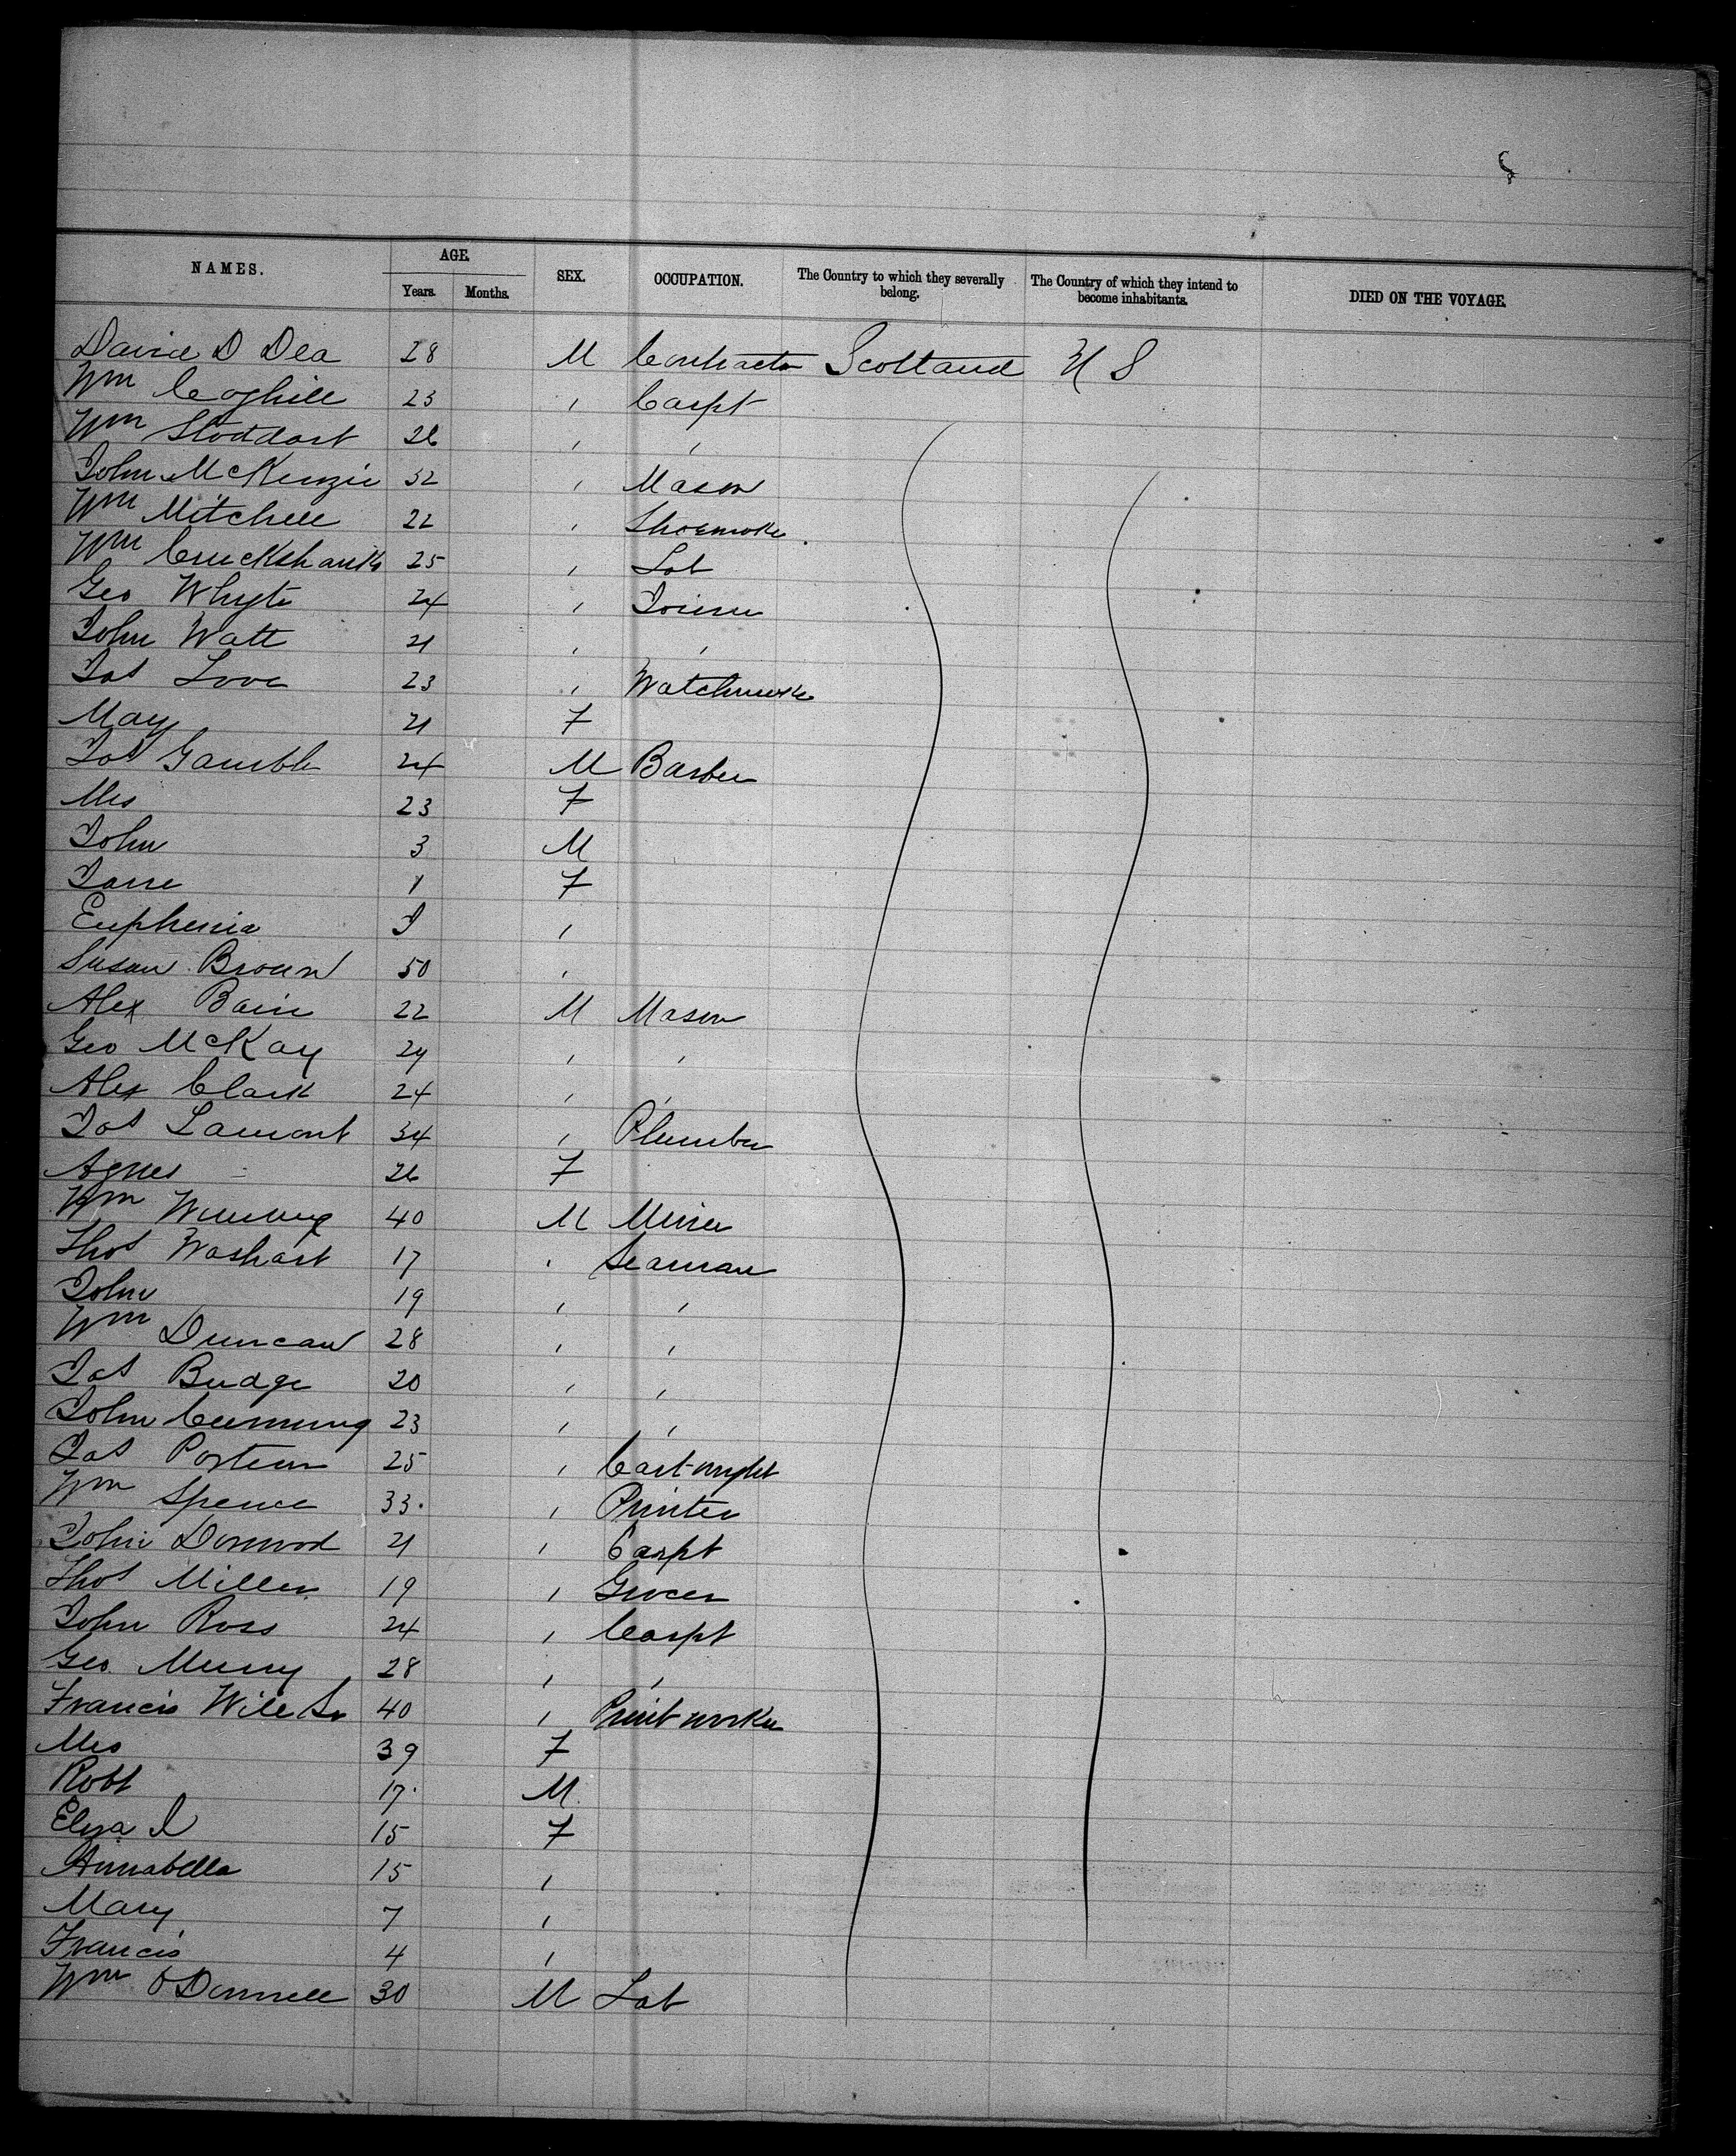 NAMES. AGE. Years. Months. SEX. OCCUPATION. The Country to which they severally belong. The Country of which they intend to become inhabitants. DIED ON THE VOYAGE.
David D Dea 28 M Contractor Scotland U S
Wm Coghill 23 , Carpt
Wm Stoddart 26 , ,
John McKenzie 32 , Mason
Wm Mitchell 22 , Shoemake
Wm Cruckshank 25 , Lab
Geo Whyte 24 , Joiner
John Watt 21 , ,
Jas Love 23 , Watchmake
May 21 F
Jas Gamble 24 M Barber
Mrs 23 F
John 3 M
Jane 1 F
Euphemia ,
Susan Brown 50 ,
Alex Bain 22 M Mason
Geo McKay 24 , ,
Alex Clark 24 , ,
Jas Lamont 34 , Plumber
Agnes 26 F
Wm 40 M Miner
Thos Washart 17 , Seaman
John 19 , ,
Wm Duncan 28 , ,
Jas Budge 20 , ,
John Cumming 23 , ,
Jas Porteur 25 , Cart-wright
Wm Spence 33. , Printer
John 21 , Carpt
Thos Miller 19 , Grocer
John Ross 24 , Carpt
Geo Murry 28 , ,
Francis Wile Sr 40 , Print worker
Mrs 39 F
Robt 17. M
Eliza J 15 F
Annabella 15 ,
Mary 7 ,
Francis 4 ,
Wm O'Donnell 30 M Lab